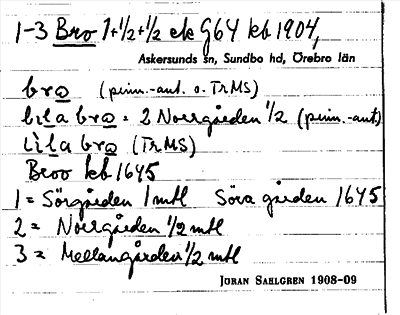 1-3 Bro 1+1/2+1/2 ek G64 kb 1904,
Askersunds sn, Sundbo hd, Örebro län
bro (pinn.-ant. o. TrMS)
lila bro = 2 Norrgården 1/2 (pinn.-ant.)
lìla bro (TrMS)
Broo kb 1645
1 = Sörgården 1 mtl Söra gården 1645
2 = Norrgården 1/2 mtl
3 = Mellangården 1/2 mtl
JÖRAN SAHLGREN 1908-09